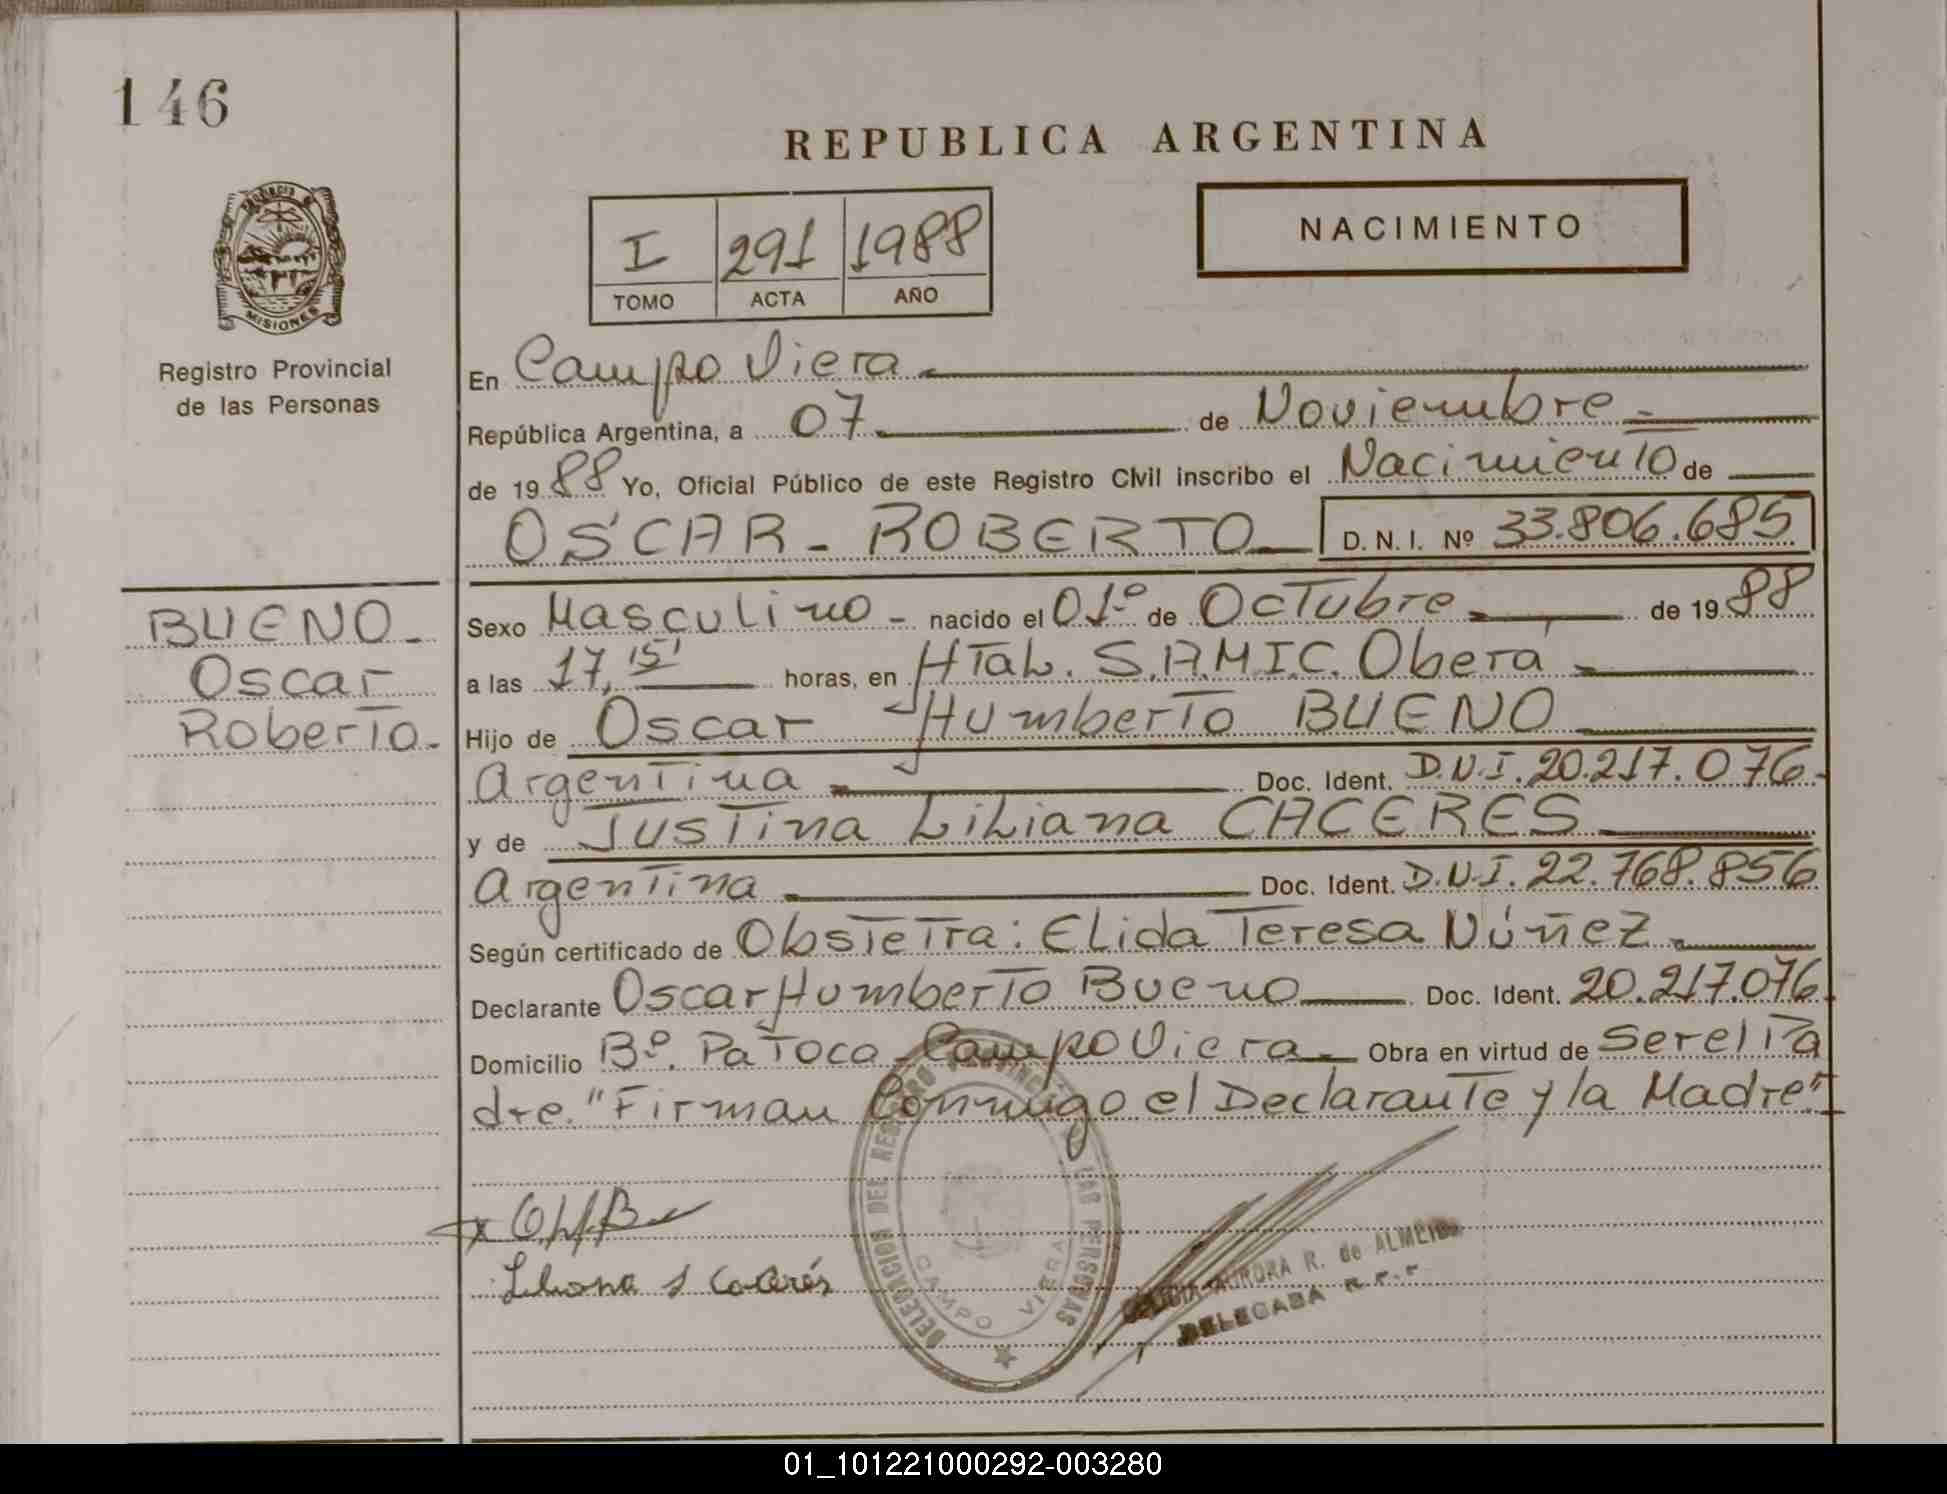 146
REPUBLICA ARGENTINA
PROVINCIA DE
MISIONES
Registro Provincial
de las Personas
I 291 1988
TOMO ACTA AÑO
NACIMIENTO
En Campo Viera
República Argentina, a 07 de Noviembre
de 1988 Yo, Oficial Público de este Registro Civil inscribo el Nacimiento de
OSCAR - ROBERTO D. N. I. Nº 33.806.685
BUENO
Oscar
Roberto.
Sexo Masculino - nacido el 01º de Octubre de 1988
a las 17,15' horas, en Htal. S.A.M.I.C. Oberá
Hijo de Oscar Humberto BUENO
Argentina Doc. Ident. D.N.I. 20.217.076.
y de Justina Liliana CACERES
Argentina Doc. Ident. D.N.I. 22.768.856
Según certificado de Obstetra: Elida Teresa Núñez
Declarante Oscar Humberto Bueno Doc. Ident. 20.217.076
Domicilio Bº. Patoca - Campo Viera Obra en virtud de ser el Pa
dre. "Firman Conmigo el Declarante y la Madre"
Liliana J Cacerés
DELEGACION DEL REGISTRO PROVINCIAL DE LAS PERSONAS
CAMPO VIERA
AURORA R. de ALMEIDA
DELEGADA R.P.P
01_101221000292-003280